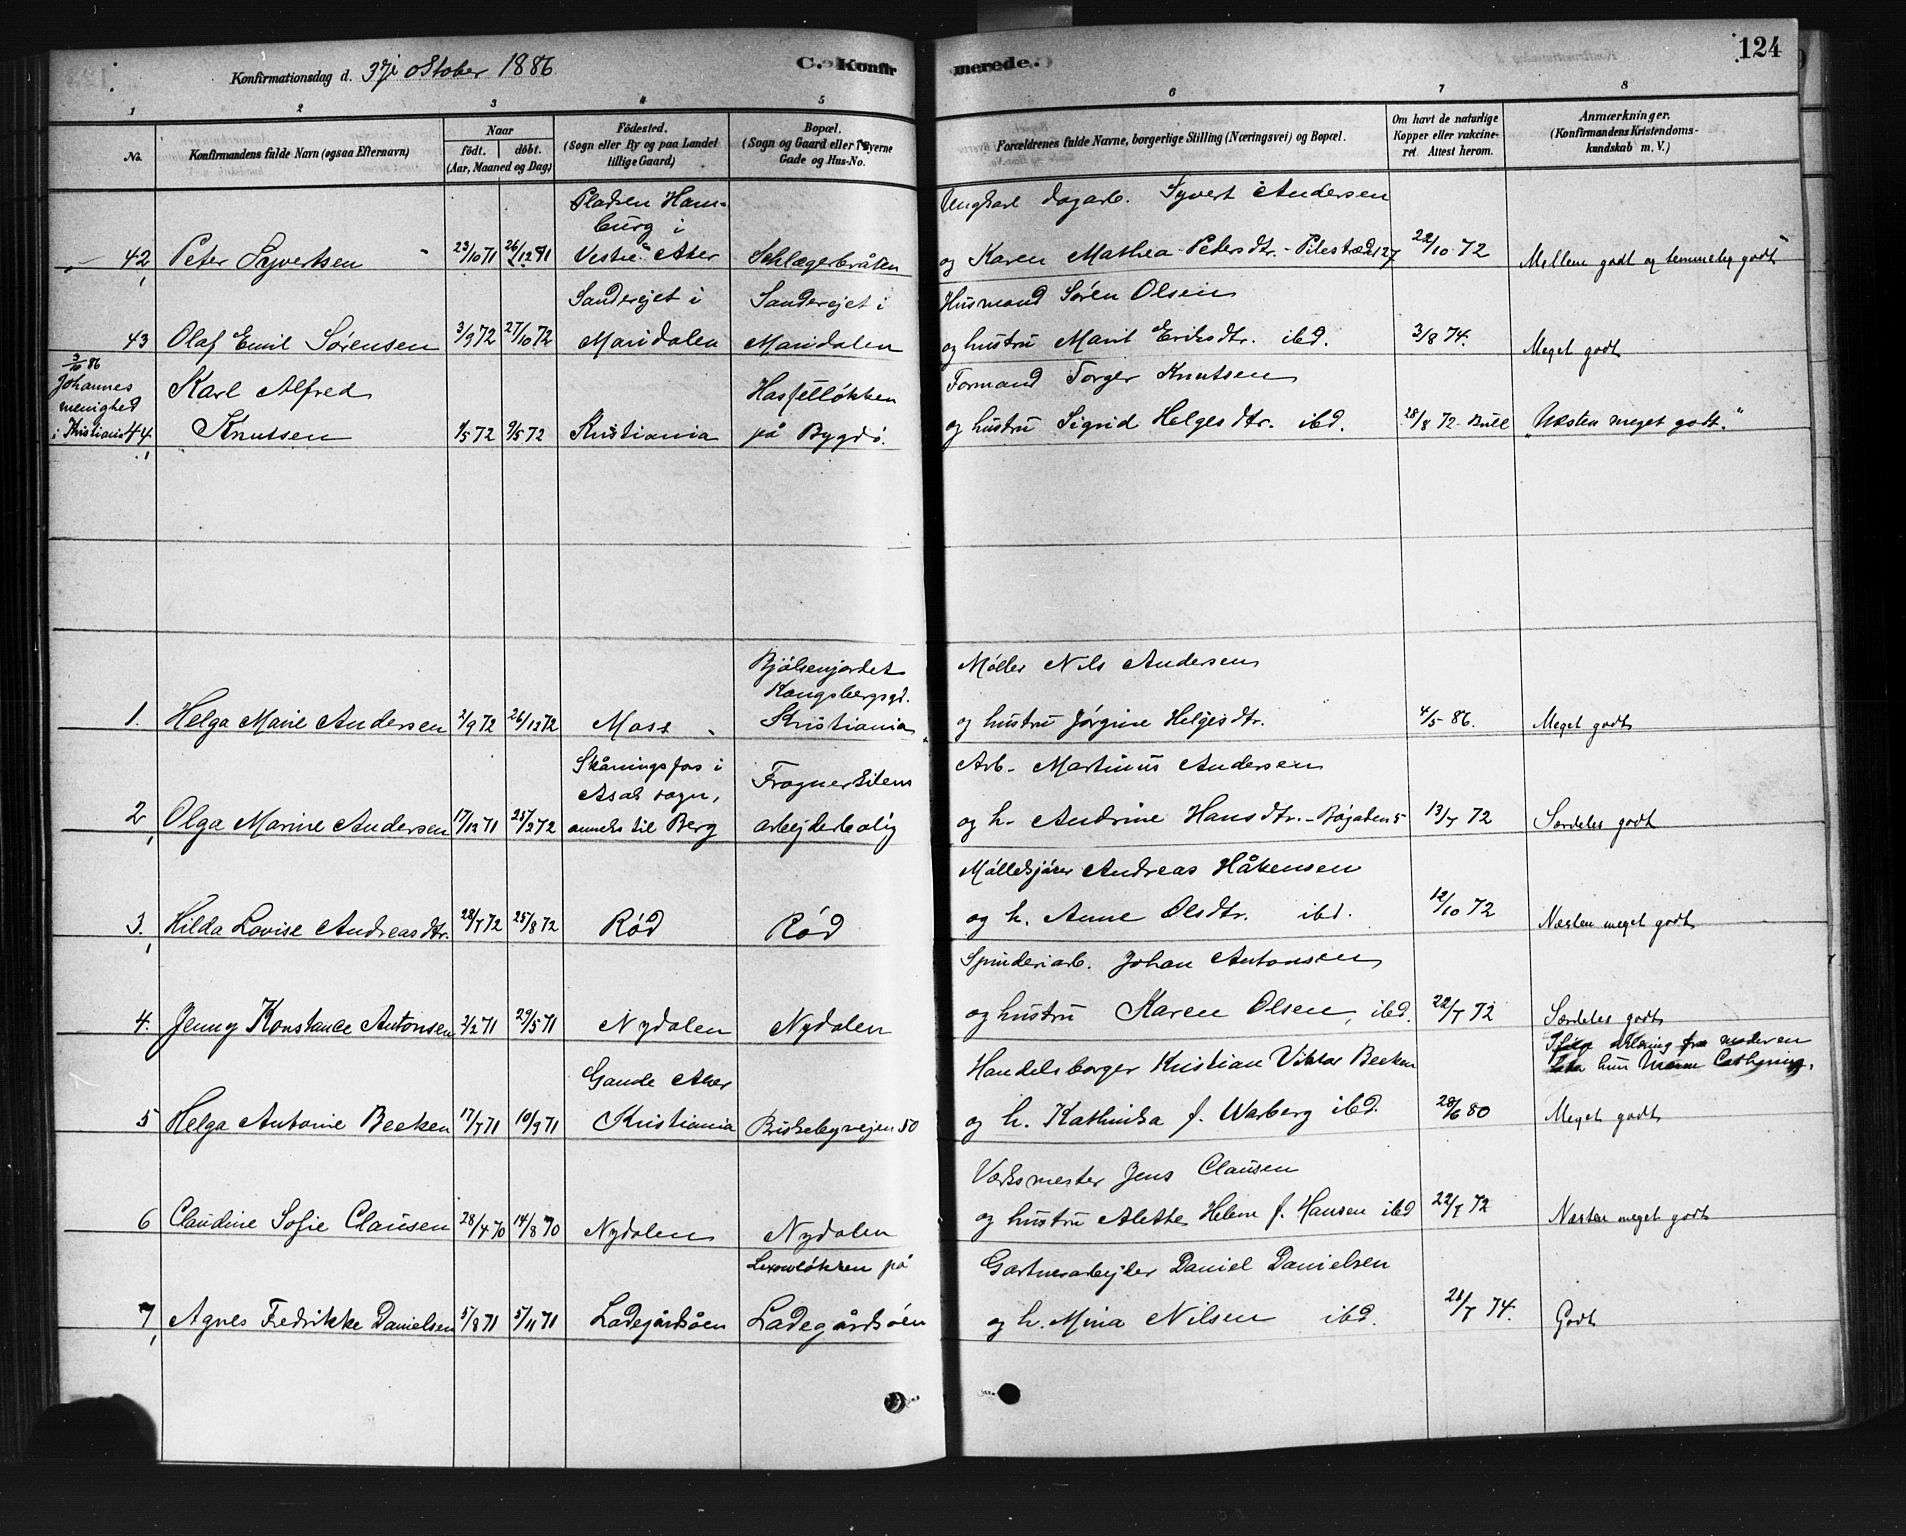 124
Konfirmationsdag d. 3die oktober 1886
C. Konfirmerede.
1 2 3 4 5 6 7 8
No.
Konfirmandens fulde Navn (ogsaa Efternavn)
Naar
födt. döbt.
(Aar, Maaned og Dag)
Födested.
(Sogn eller By og paa Landet
tillige Gaard)
Bopæl.
(Sogn og Gaard eller i Byerne
Gade og Hus-No.
Forældrenes fulde Navne, borgerlige Stilling (Næringsvei) og Bopæl.
Om havt de naturlige
Kopper eller vakcine-
ret. Attest herom.
Anmærkninger.
(Konfirmandens Kristendoms-
kundskab m. V.)
Pladsen Ham- Ungkarl dagarb. Syvert Andersen
burg i
42 Peter Syvertsen 23/10 71 26/12 71 Vestre Aker Schlægerbråten og Karen Mathea Pedersdtr. - Pilestræde 127 22/10 72 Mellem godt og temmelig godt
Sanderejet i Sanderejet i Husmand Søren Olsen
43 Olaf Emil Sørensen 3/9 72 27/10 72 Maridalen Maridalen og hustru Marit Eriksdtr. ibd. 3/8 74. Meget godt
3/10 86
Johannes Karl Alfred Hasselløkken Formand Torger Knutsen
menighed
i Kristiania 44 Knutsen 1/5 72 9/5 72 Kristiania på Bygdø. og hustru Sigrid Helgesdtr. ibd. 28/8 72 - Bull „Næsten meget godt."
Bjølsenjordet Møller Nils Andersen
Kongsbergsgd.
1. Helga Marie Andersen 2/9 72 26/12 72 Moss Kristiania og hustru Jørgine Helgesdtr. 4/5 - 86. Meget godt
Skåningsfos i Frognerkilens Arb. Martinus Andersen
Asak sogn,
2 Olga Marine Andersen 17/12 71 25/2 72 anneks til Berg arbejderbolig og h. Andrine Hansdtr. - Bøgaden 5 13/7 72 Særdeles godt
Møllekjører Andreas Håkensen
3. Hilda Lovise Andreasdtr. 28/7 72 25/8 72 Rød Rød og h. Anne Olsdtr. ibd. 12/10 72 Næsten meget godt
Spinderiarb. Johan Antonsen
4. Jenny Konstance Antonsen 2/2 71 29/5 71 Nydalen Nydalen og hustru Karen Olsen, ibd. 22/7 72 Særdeles godt
moderen
Gamle Aker Handelsborger Kristian Viktor Becken hun
5 Helga Antonie Becken 17/7 71 10/9 71 Kristiania Briskebyvejen 50 og h. Kathinka f. Warberg ibd. 28/6 80 Meget godt
Værksmester Jens Clausen
6 Claudine Sofie Clausen 28/4 70 14/8 70 Nydalen Nydalen og hustru Alette Helene f. Hansen ibd 22/7 72 Næsten meget godt
Lexowløkken på Gartnerarbejder Daniel Danielsen
7 Agnes Fredrikke Danielsen 5/8 71 5/11 71 Ladegårdsøen Ladegårdsøen og h. Mina Nilsen ibd. 21/7 74. Godt